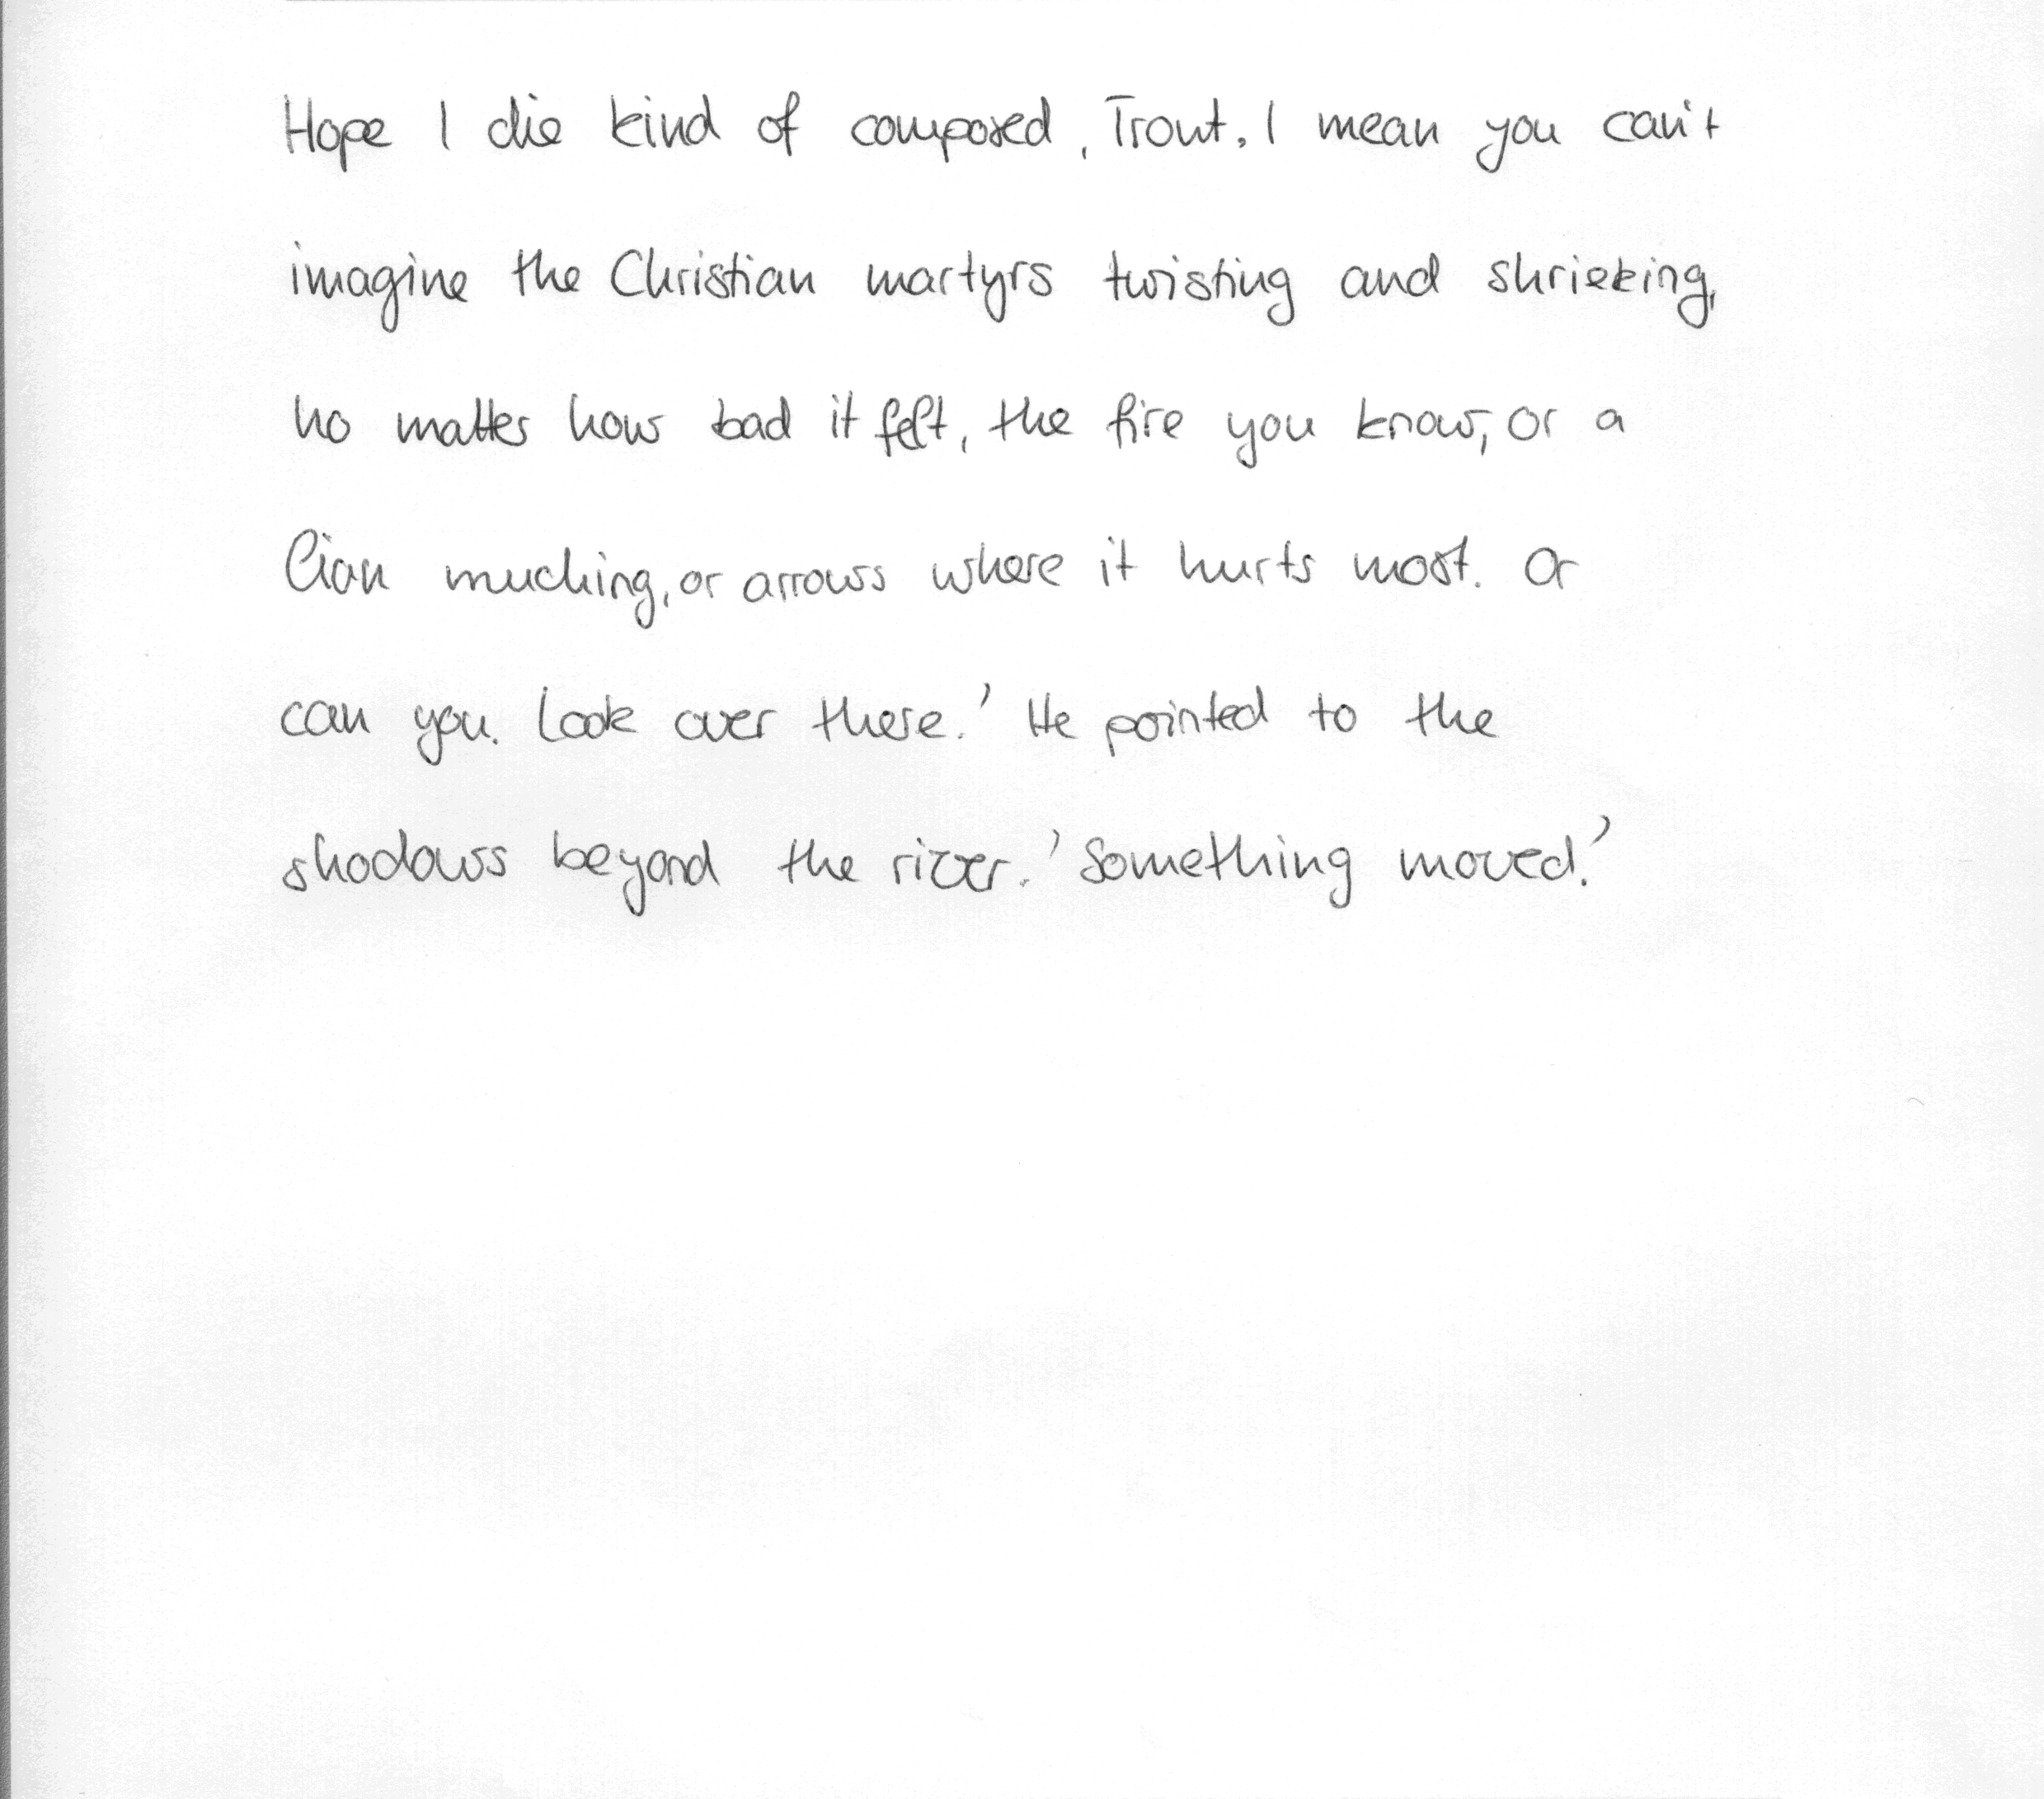 Hope I die kind of composed, Trout, I mean you can't
imagine the Christian martyrs twisting and shrieking,
no matter how bad it felt, the fire you know, or a
lion muching, or arrows where it hurts most. Or
can you. Look over there.' He pointed to the
shodows beyond the river. 'Something moved.'